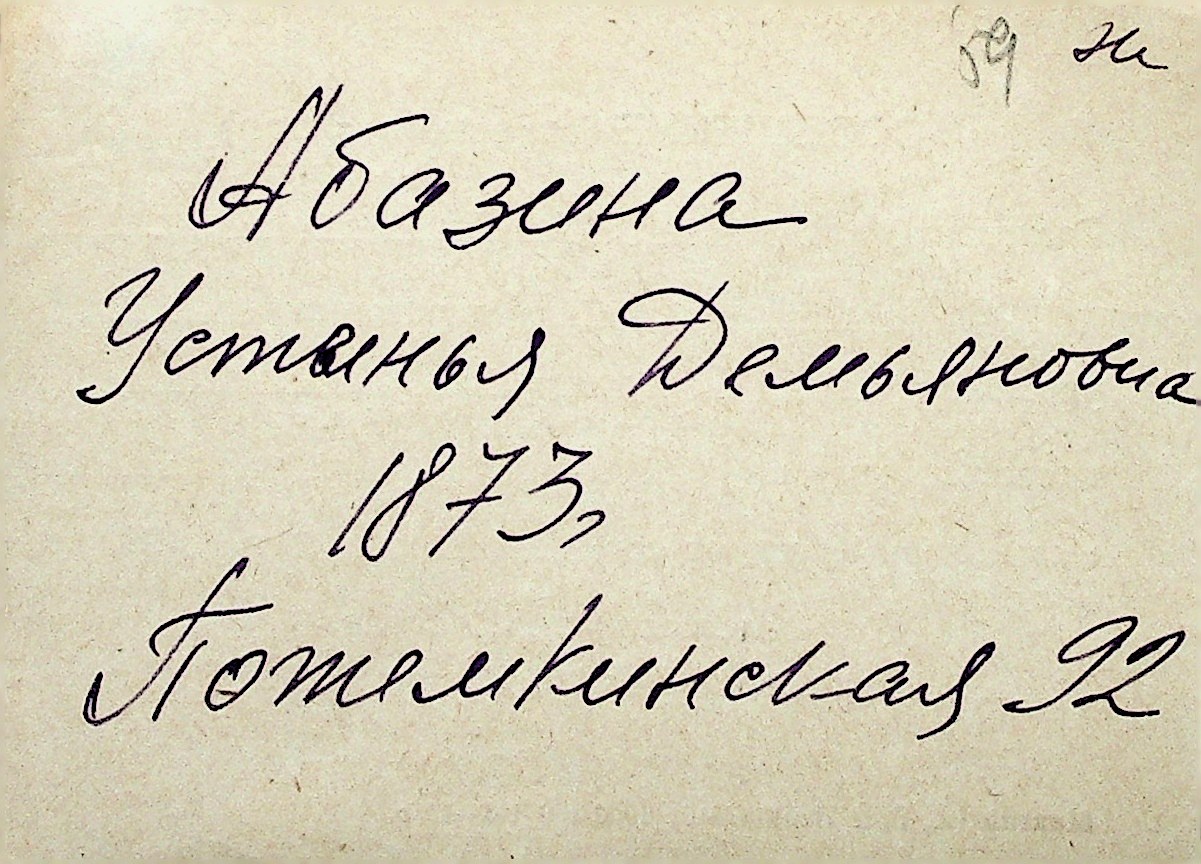 59 ж
Абазина
Устинья Демьяновна
1873,
Потемкинская 92